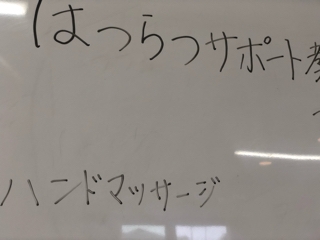 はつらつサポート
ハンドマッサージ